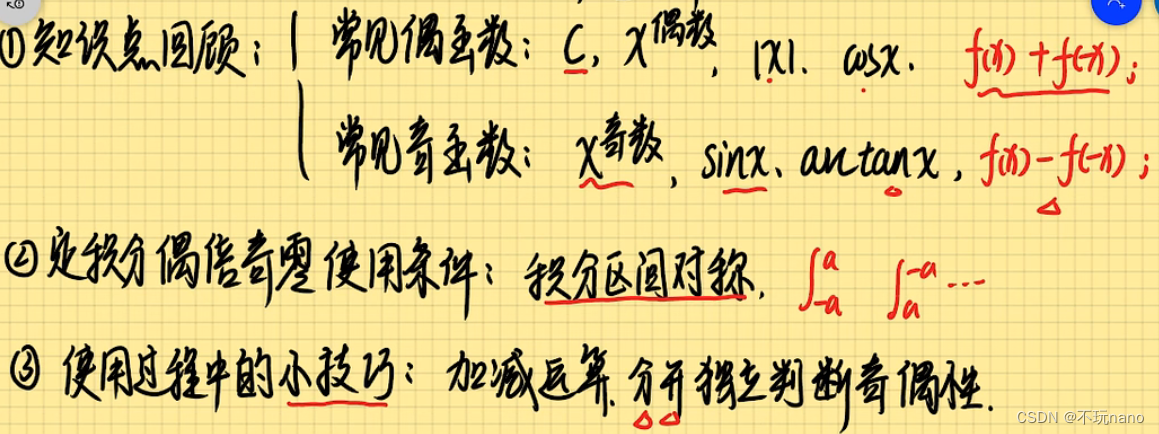 ①知识点回顾：常见偶函数：C, x^偶数, |x|、cosx、f(x)+f(-x);
常见奇函数：x^奇数, sinx、arctanx, f(x)-f(-x);
②定积分偶倍奇零使用条件：积分区间对称. ∫_{-a}^{a} ∫_{a}^{-a} ...
③使用过程中的小技巧：加减运算.分开独立判断奇偶性.
CSDN @不玩nano